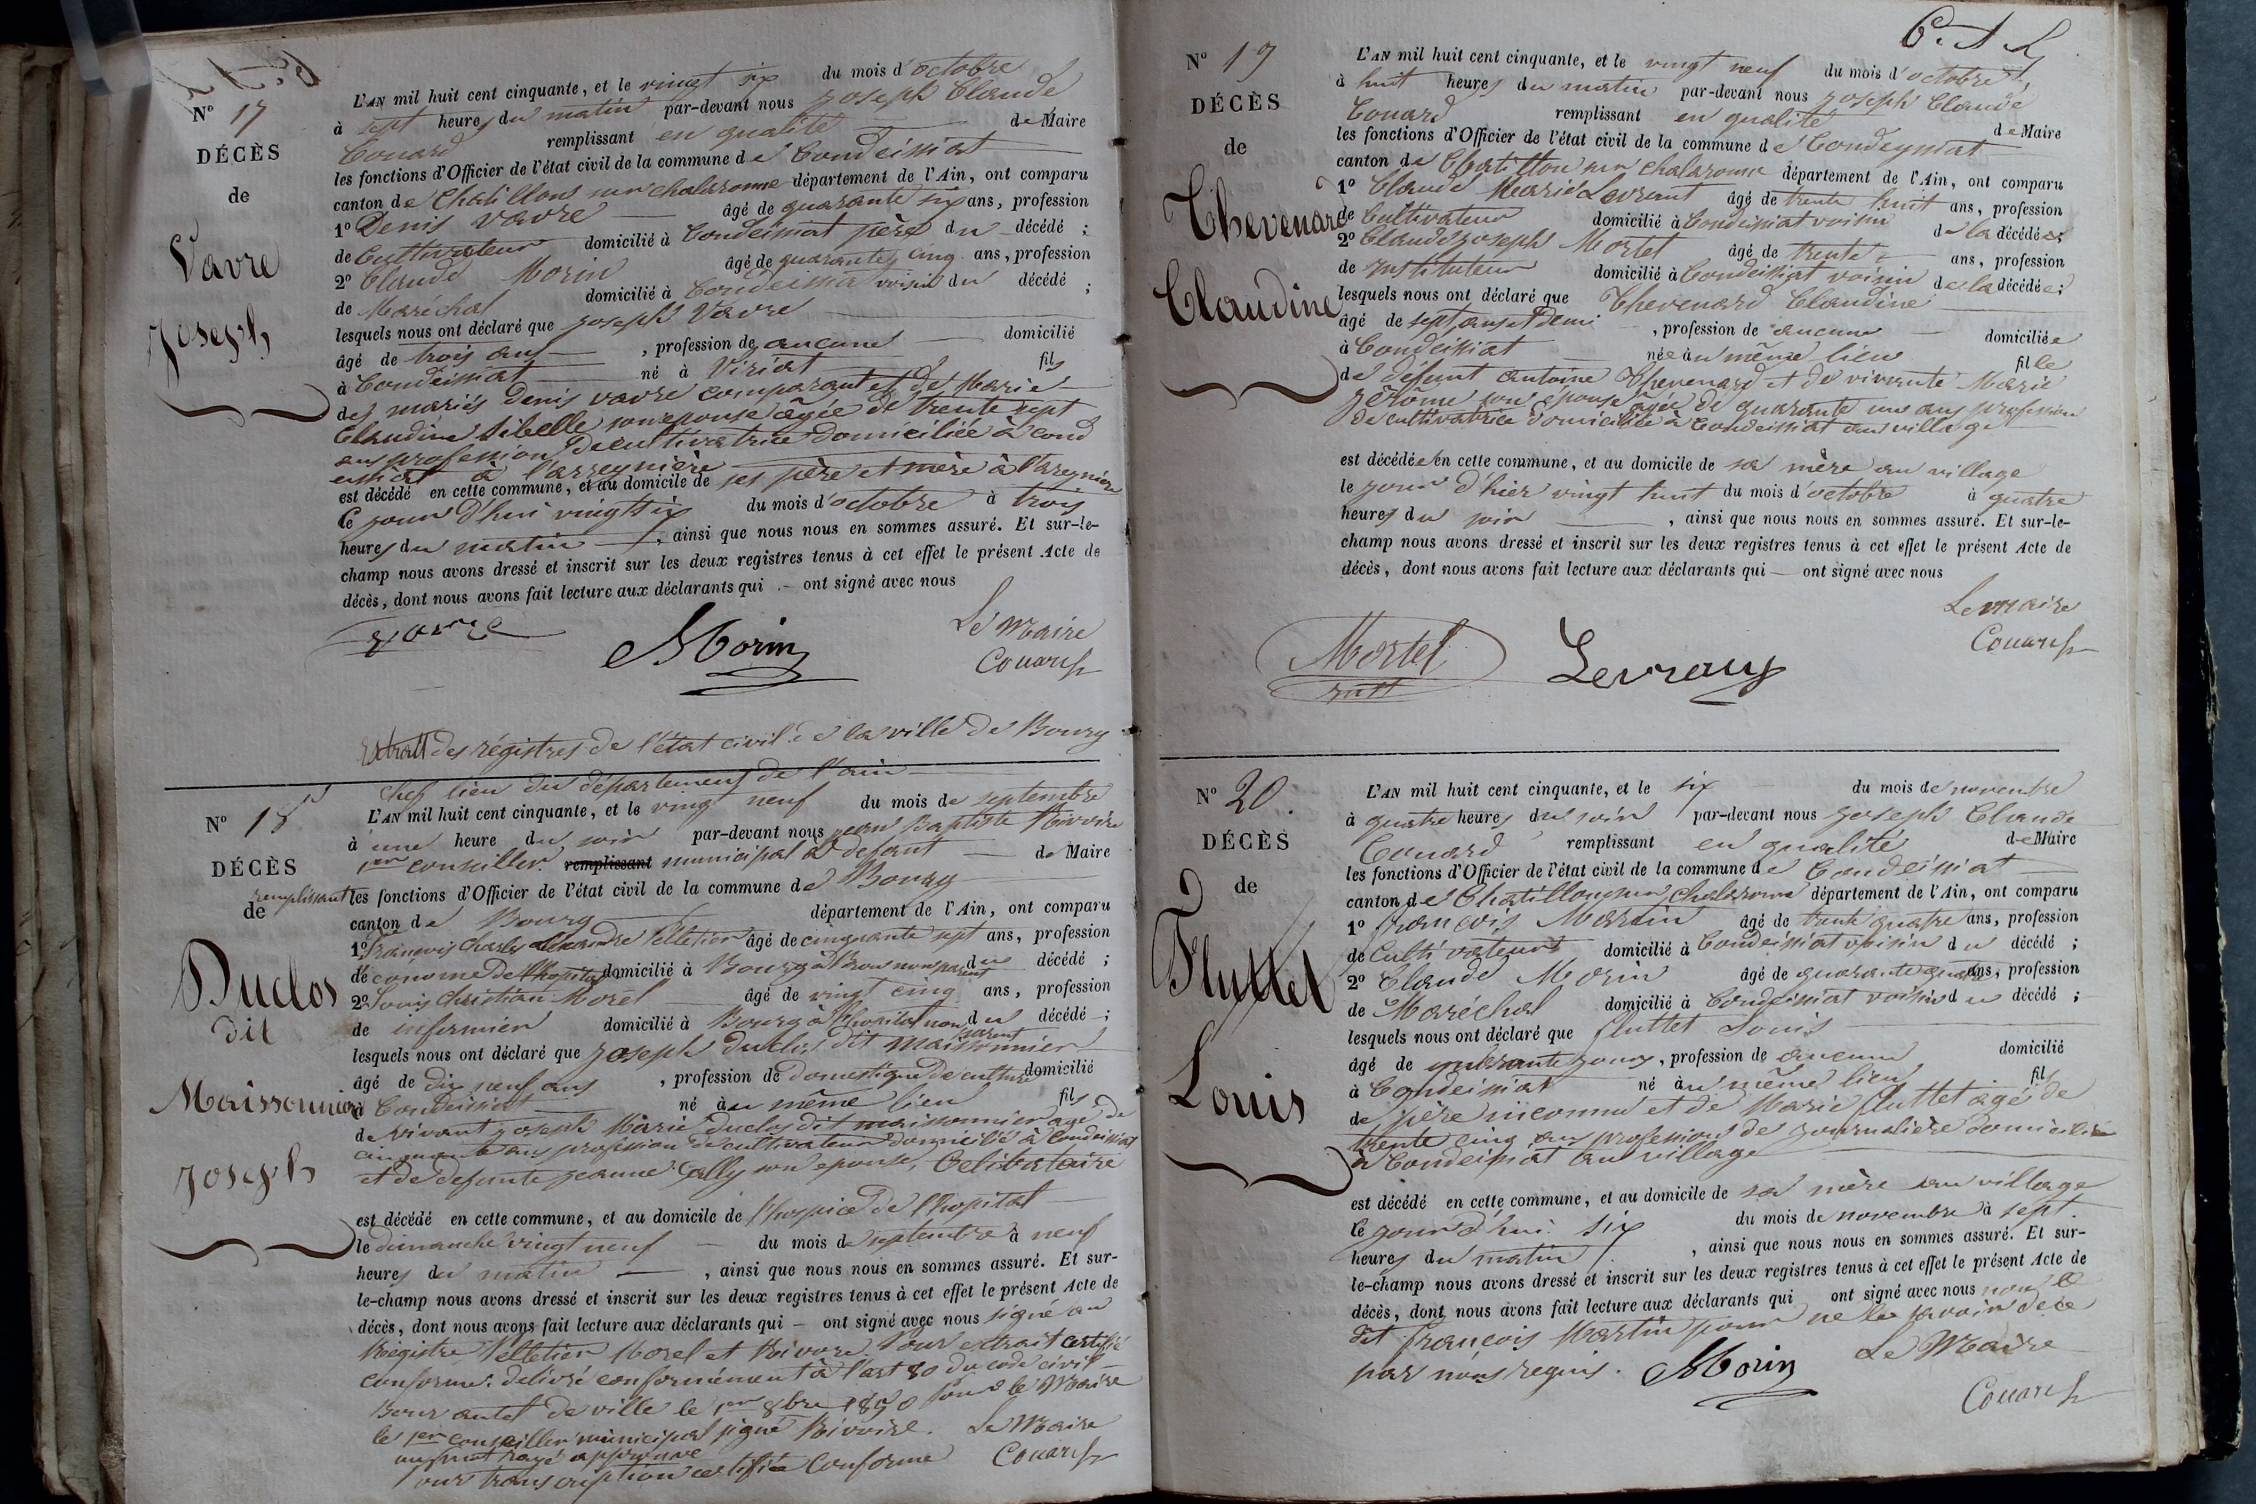 Nº 17
DÉCÈS
de
Vavre
Joseph
L'AN mil huit cent cinquante, et le vingt six du mois d'octobre
à sept heures du matin par-devant nous Joseph Claude
Couard remplissant en qualité de Maire
les fonctions d'Officier de l'état civil de la commune de Condeissiat
canton de Chatillon sur chalaronne département de l'Ain, ont comparu
1º Denis Vavre âgé de quarante six ans, profession
de Cultivateur domicilié à Condeissiat père du décédé ;
2º Claude Morin âgé de quarante cinq ans, profession
de Maréchal domicilié à Condeissiat voisin du décédé ;
lesquels nous ont déclaré que Joseph Vavre
âgé de trois ans , profession de aucune domicilié
à Condeissiat né à Viriat fils
des mariés Denis vavre comparant et de Marie
Claudine Sibelle son epouse âgée de trente sept
ans profession de cultivatrice domiciliée à cond
eissiat à l'arreynière
est décédé en cette commune, et au domicile de ses père et mère à l'areynière
le jour d'hui vingt six du mois d'octobre à trois
heures du matin , ainsi que nous nous en sommes assuré. Et sur-le-
champ nous avons dressé et inscrit sur les deux registres tenus à cet effet le présent Acte de
décès, dont nous avons fait lecture aux déclarants qui — ont signé avec nous
vavre Morin Le Maire
Couard
Extrait des régistres de l'état civil de la ville de Bourg
chef lieu du département de l'ain
Nº 18
DÉCÈS
de
Duclos
dit
Maissonnier
Joseph
L'AN mil huit cent cinquante, et le vingt neuf du mois de septembre
à une heure du soir par-devant nous jean Baptiste Rivoire
1er conseiller remplissant municipal à defaut de Maire
remplissant les fonctions d'Officier de l'état civil de la commune de Bourg
canton de Bourg département de l'Ain, ont comparu
1º François Charles Pelletier âgé de cinquante sept ans, profession
de econome de l'hopital domicilié à Bourg non parent du décédé ;
2º Louis Christian Morel âgé de vingt cinq ans, profession
de infirmier domicilié à Bourg à l'hopital non parent du décédé ;
lesquels nous ont déclaré que Joseph duclos dit maissonnier
âgé de dix neuf ans , profession de domestique de culture domicilié
à Condeissiat né au même lieu fils
de vivant joseph Marie duclos dit maissonnier agé de
cinquante ans profession de cultivateur domicilié à Condeissiat
et de defunte jeanne son epouse, Celibataire
est décédé en cette commune, et au domicile de l'hospice de l'hopital
le dimanche vingt neuf du mois de septembre à neuf
heures du matin , ainsi que nous nous en sommes assuré. Et sur-
le-champ nous avons dressé et inscrit sur les deux registres tenus à cet effet le présent Acte de
décès, dont nous avons fait lecture aux déclarants qui — ont signé avec nous signé au
Régistre Pelletier Morel et Rivoire Pour extrait certifié
conforme delivré conformément à l'art 80 du code civil
Bourg de ville le 1er 8bre 1850 Pour le Maire
le 1er conseiller municipal signé Rivoire. Le Maire
un mot rayé approuvé
Pour transcription certifiée Conforme Couard
Nº 19
DÉCÈS
de
Thevenard
Claudine
L'AN mil huit cent cinquante, et le vingt neuf du mois d'octobre
à huit heures du matin par-devant nous Joseph Claude
Couard remplissant en qualité de Maire
les fonctions d'Officier de l'état civil de la commune de Condeyssiat
canton de Chatillon sur chalaronne département de l'Ain, ont comparu
1º Claude Marie Levrant âgé de trente huit ans, profession
de Cultivateur domicilié à Condeissiat voisin de la décédée;
2º Claude Joseph Mortel âgé de trente ans, profession
de Instituteur domicilié à Condeissiat voisin de la décédée;
lesquels nous ont déclaré que Thevenard Claudine
âgé de sept ans et demi , profession de aucune domiciliée
à Condeissiat née au même lieu fille
de défunt antoine Thevenard et de vivante Marie
Jérôme son épouse âgée de quarante un ans profession
de cultivatrice domiciliée à Condeissiat au village
est décédée en cette commune, et au domicile de sa mère au village
le jour d'hier vingt huit du mois d'octobre à quatre
heures du soir , ainsi que nous nous en sommes assuré. Et sur-le-
champ nous avons dressé et inscrit sur les deux registres tenus à cet effet le présent Acte de
décès, dont nous avons fait lecture aux déclarants qui — ont signé avec nous
Le maire
Mortel Levrau Couard
Nº 20.
DÉCÈS
de
Fluttet
Louis
L'AN mil huit cent cinquante, et le six du mois de novembre
à quatre heures du soir par-devant nous Joseph Claude
Couard remplissant en qualité de Maire
les fonctions d'Officier de l'état civil de la commune de Condeissiat
canton de Chatillon sur chalaronne département de l'Ain, ont comparu
1º françois Martin âgé de trente quatre ans, profession
de cultivateur domicilié à Condeissiat voisin du décédé ;
2º Claude Morin âgé de quarante ans, profession
de Maréchal domicilié à Condeissiat voisin du décédé ;
lesquels nous ont déclaré que fluttet Louis
âgé de quarante jours, profession de aucune domicilié
à Condeissiat né au même lieu fils
de père inconnu et de Marie fluttet agé de
trente cinq ans profession de journalière domiciliée
à Condeissiat au village
est décédé en cette commune, et au domicile de sa mère au village
le jour d'hui six du mois de novembre à sept
heures du matin , ainsi que nous nous en sommes assuré. Et sur-
le-champ nous avons dressé et inscrit sur les deux registres tenus à cet effet le présent Acte de
décès, dont nous avons fait lecture aux déclarants qui ont signé avec nous non le
dit françois Martin pour ne le savoir de ce
par nous requis. Morin Le Maire
Couard